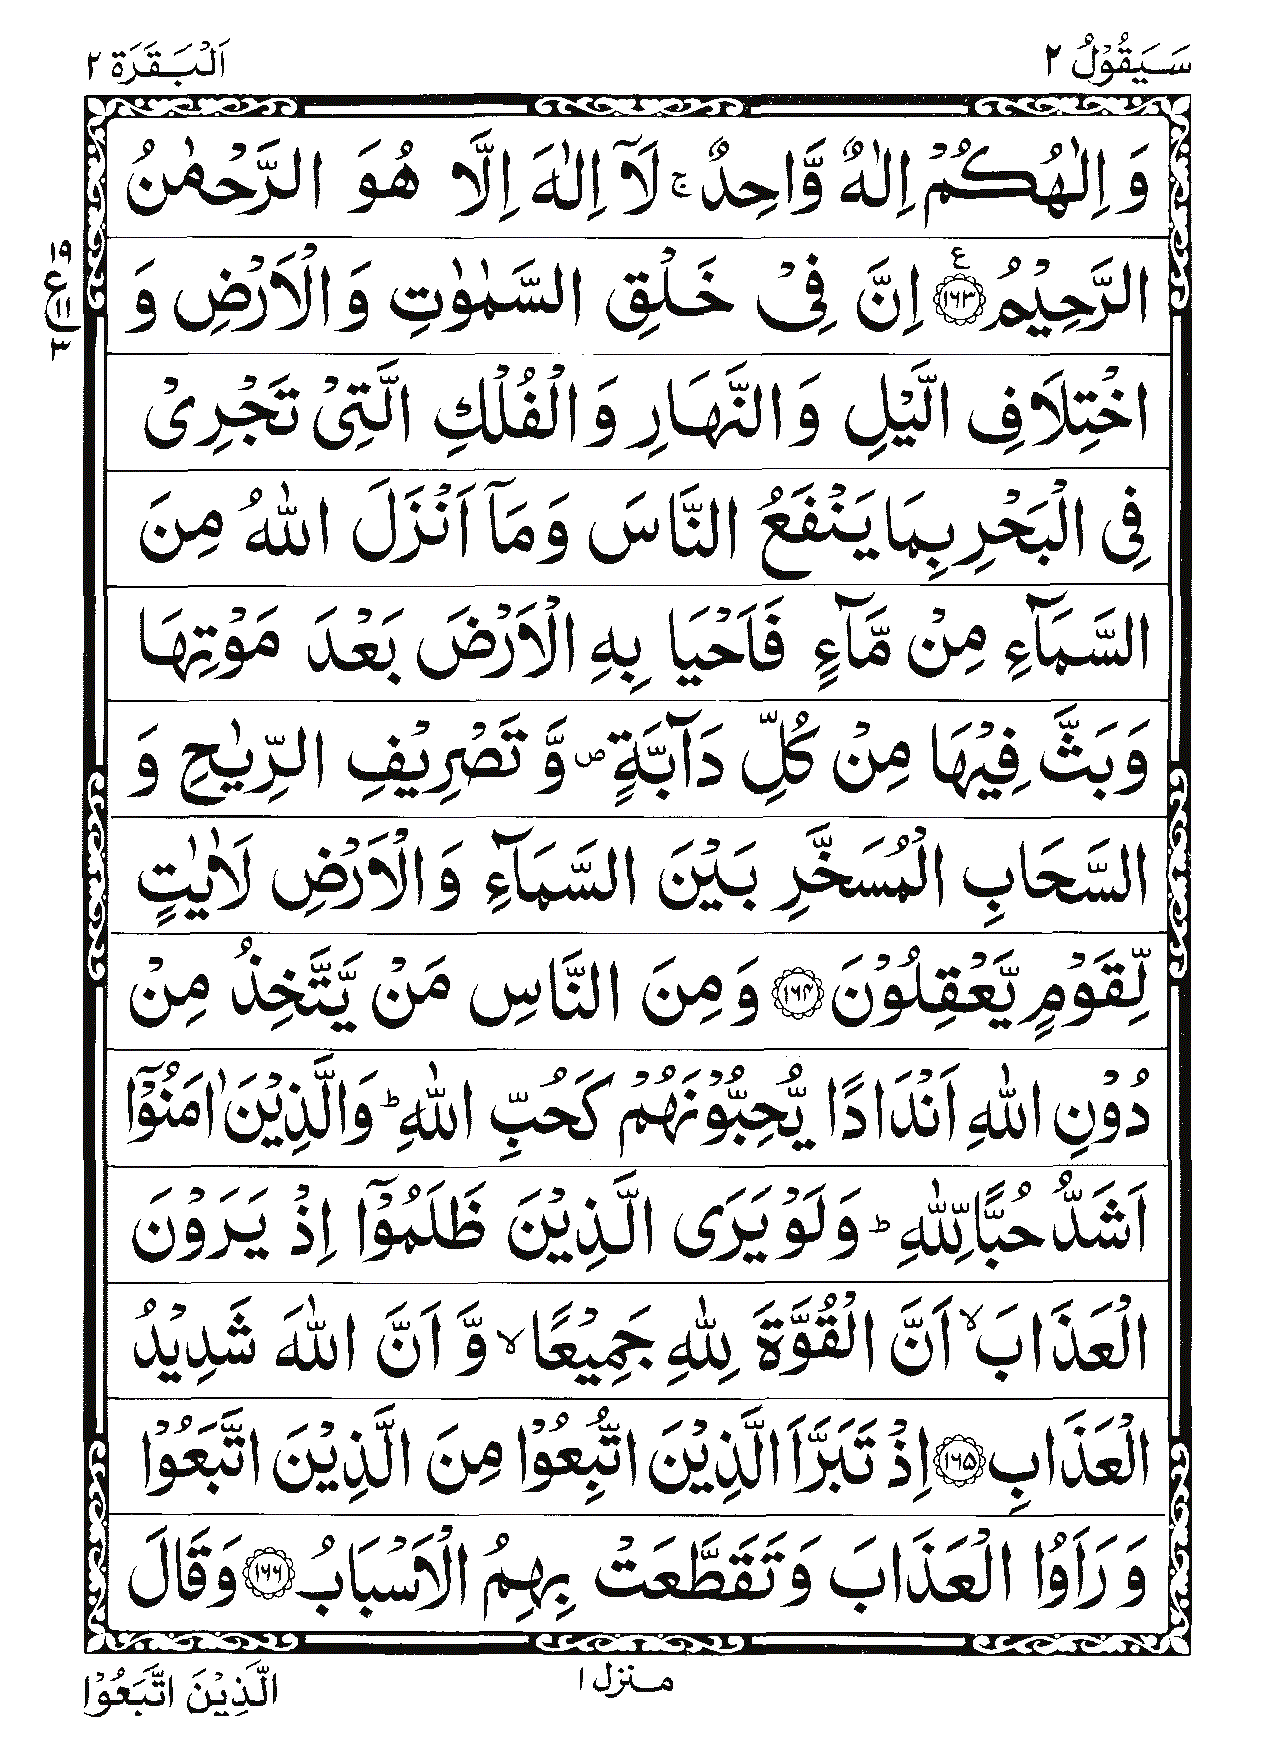 سَيَقُوْلُ ٢
اَلْبَقَرَة ٢
وَ اِلٰهُكُمْ اِلٰهٌ وَّاحِدٌ ۚ لَآ اِلٰهَ اِلَّا هُوَ الرَّحْمٰنُ
الرَّحِيْمُ ﴿۱۶۳﴾ ع اِنَّ فِىْ خَلْقِ السَّمٰوٰتِ وَ الْاَرْضِ وَ
١٩
ع
١١
٣
اخْتِلَافِ الَّيْلِ وَ النَّهَارِ وَ الْفُلْكِ الَّتِىْ تَجْرِىْ
فِى الْبَحْرِ بِمَا يَنْفَعُ النَّاسَ وَمَآ اَنْزَلَ اللّٰهُ مِنَ
السَّمَآءِ مِنْ مَّآءٍ فَاَحْيَا بِهِ الْاَرْضَ بَعْدَ مَوْتِهَا
وَبَثَّ فِيْهَا مِنْ كُلِّ دَآبَّةٍ ص وَّ تَصْرِيْفِ الرِّيٰحِ وَ
السَّحَابِ الْمُسَخَّرِ بَيْنَ السَّمَآءِ وَ الْاَرْضِ لَاٰيٰتٍ
لِّقَوْمٍ يَّعْقِلُوْنَ ﴿۱۶۴﴾ وَ مِنَ النَّاسِ مَنْ يَّتَّخِذُ مِنْ
دُوْنِ اللّٰهِ اَنْدَادًا يُّحِبُّوْنَهُمْ كَحُبِّ اللّٰهِ ؕ وَالَّذِيْنَ اٰمَنُوْٓا
اَشَدُّ حُبًّا لِّلّٰهِ ؕ وَلَوْ يَرَى الَّذِيْنَ ظَلَمُوْٓا اِذْ يَرَوْنَ
الْعَذَابَ ۙ اَنَّ الْقُوَّةَ لِلّٰهِ جَمِيْعًا ۙ وَّ اَنَّ اللّٰهَ شَدِيْدُ
الْعَذَابِ ﴿۱۶۵﴾ اِذْ تَبَرَّاَ الَّذِيْنَ اتُّبِعُوْا مِنَ الَّذِيْنَ اتَّبَعُوْا
وَ رَاَوُا الْعَذَابَ وَ تَقَطَّعَتْ بِهِمُ الْاَسْبَابُ ﴿۱۶۶﴾ وَقَالَ
منزل ١
الَّذِيْنَ اتَّبَعُوْا